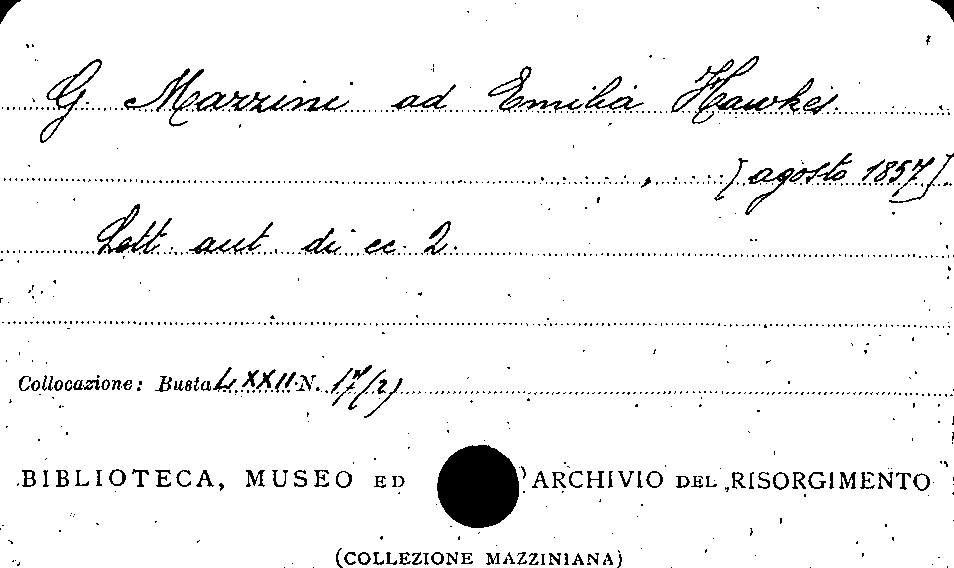 G. Mazzini ad Emilia Hawkes
[agosto 1857]
Lett. aut. di cc. 2.
Collocazione: Busta LXXII N. 17/(2)
BIBLIOTECA, MUSEO ED ARCHIVIO DEL RISORGIMENTO
(COLLEZIONE MAZZINIANA)